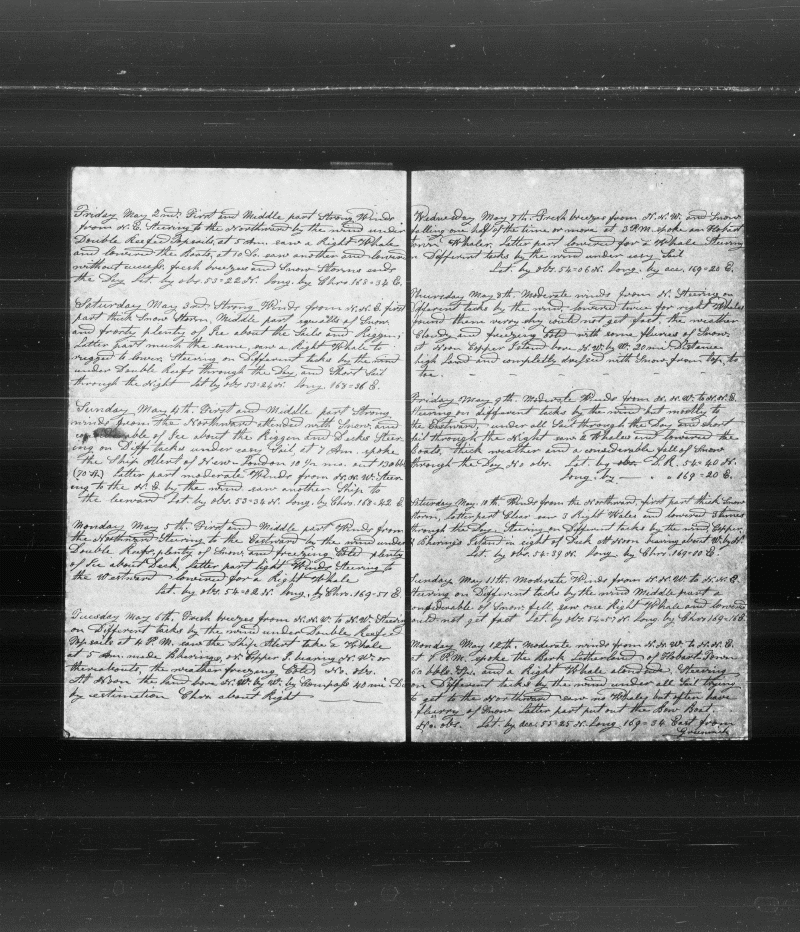 Friday May 2nd. First and Middle part Strong Winds
from N.E. Steering to the Northward by the wind under
Double Reefed Topsails, at 5 Am. saw a Right Whale
and lowered the Boats, at 10 Do. saw another and lowered
without success. fresh breezes and Snow Storms ends
the Day Lat. by obs. 53=22 N. Long. by Chro. 168=34 E.
Saturday May 3rd. Strong Winds from N.N.E. first
part thick Snow Storm, Middle part squalls of Snow
and frosty, plenty of Ice about the Sails and Riggin,
Latter part much the same, saw a Right Whale to
rugged to lower. Steering on Different tacks by the wind
under Double Reefs through the Day and Short Sail
through the Night Lat by obs 53=24 N. Long. 168=36 E.
Sunday May 4th. First and Middle part Strong
winds from the Northward atended with Snow, and
of Ice about the Riggen and Decks Steer-
ing on Diff tacks under easy Sail at 7 Am. spoke
the Ship Alert of New-London 10 mo. out
Latter part moderate Winds from N.N.W. Steer-
ing to the N.E. by the wind saw another Ship to
the leeward Lat by obs. 53=34 N. Long. by Chro. 168=42 E.
Monday May 5th First and Middle part Winds from
the Northward Steering to the Eastward by the wind under
Double Reefs, plenty of Snow, and freezing Cold plenty
of Ice about Deck, Latter part light Winds Steering to
the Westward lowered for a Right Whale
Lat. by obs. 54=02 N. Long. by Chro. 169=51 E.
Tuesday May 6th. Fresh breezes from N.N.W. to N.W. Steering
on Different tacks by the wind under Double Reefed
Topsails at 4 P.M. saw the Ship Alert take a Whale
at 5 Am. made Bherings, or Copper I. bearing N.W. or
thereabouts, the weather freezing Cold, No. obs.
At Noon the land bore N.W. by W. by Compass 40 mi. D.
by estimation Chro. about Right
Wednesday May 7th. Fresh breezes from N.N.W. and Snow
falling one half the time or more at 3 P.M. spoke an Hobart
Town Whaler. Latter part lowered for a Whale Steering
on Different tacks by the wind under easy Sail
Lat. by obs. 54=06 N. Long. by acc. 169=20 E.
Thursday May 8th. Moderate winds from N. Steering on
Different tacks by the wind, lowered twice for right Whales
found them very shy could not get fast the weather
Cloudy and freezing Cold with some flurries of Snow,
at Noon Copper Island bore N.W. by W. 20 mi. Distance
high Land and completly dressed with Snow from top, to
toe.
Friday May 9th. Moderate Winds from N.N.W. to N.N.E.
Steering on different tacks by the wind but mostly to
the Eastward, under all Sail through the Day and short
sail through the Night saw 2 Whales and lowered the
Boats, thick weather and a considerable fell of Snow
through the Day No obs. Lat. by obs D.R. 54=40 N.
Long. by — " " 169=20 E.
Saturday May 10th Winds from the Northward first part thick Snow
Storm, latter part Clear saw 3 Right Wales and lowered 3 times
through the Day. Steering on Different tacks by the wind, Copper
& Bhering's Island in sight of Deck At Noon bearing about W. by N.
Lat. by obs. 54=39 N. Long by Chro. 169=10 E.
Sunday May 11th. Moderate Winds from N.N.W. to N.N.E.
Steering on Different tacks by the wind Middle part a
considerable of Snow fell, saw one Right Whale and lowered
could not get fast Lat. by obs 54=57 N. Long by Chro 169=16 E.
Monday May 12th. Moderate winds from N.N.W. to N.N.E.
at 7 P.M. spoke the Bark of Hobart Town
60 bbls. Sp. and a Right Whale alongside. Steering
on Different tacks by the wind under all Sail trying
to get to the Northward saw no Whales but often have
flurry of Snow Latter part put out the Bow Boat.
No. obs. Lat. by acc. 55=25 N. Long 169=34 East from
Greenwich